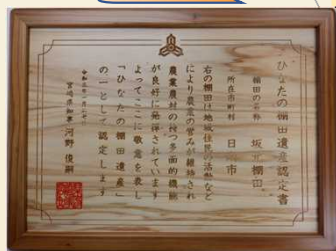 ひなたの棚田遺産認定書
棚田の名称 坂元棚田
所在市町村 日南市
右の棚田は地域住民の活動など
により農業の営みが継続され
農業農村の持つ多面的機能
が良好に発揮されています
よってここに敬意を表し
「ひなたの棚田遺産」
の一として認定します
宮崎県知事 河野俊嗣